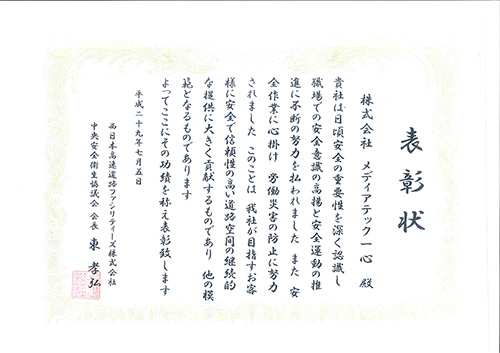 表彰状
株式会社 メディアテック一心 殿
貴社は日頃安全の重要性を深く認識し
職場での安全意識の高揚と安全運動の推
進に不断の努力を払われました また 安
全作業に心掛け 労働災害の防止に努力
されました このことは 我社が目指すお客
様に安全で信頼性の高い道路空間の継続的
な提供に大きく貢献するものであり 他の模
範となるものであります
よってここにその功績を称え表彰致します
平成二十九年七月五日
西日本高速道路ファシリティーズ株式会社
中央安全衛生協議会 会長 東 孝弘